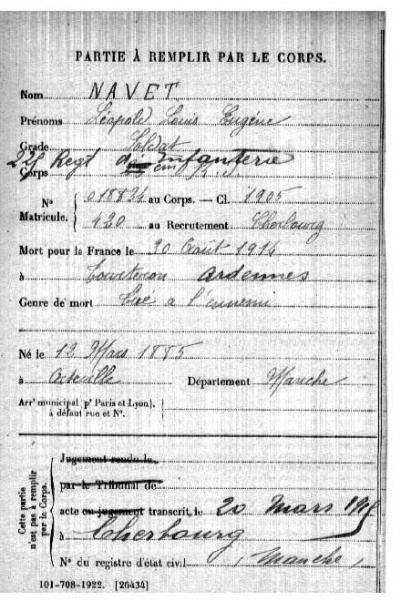 PARTIE À REMPLIR PAR LE CORPS.
Nom NAVET
Prénoms Léopold Louis Eugène
Grade Soldat
225 Regt d'Infanterie
Corps
N° 018834 au Corps. — Cl. 1905
Matricule. 420 au Recrutement Cherbourg
Mort pour la France le 30 Août 1914
à Tourteron Ardennes
Genre de mort Tué a l'ennemi
Né le 12 Mars 1885
à Octeville Département Manche
Arrt municipal (pr Paris et Lyon),
à défaut rue et N°.
Cette partie
n'est pas à remplir
par le Corps.
Jugement rendu le
par le Tribunal de
acte ou jugement transcrit le 20 Mars
à Cherbourg
N° du registre d'état civil (Manche)
101-708-1922. [26434]